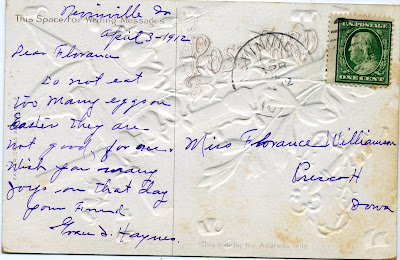 This Space for Writing Messages
April 3-1912
Dear Florance
Do not eat
too many eggs on
Easter they are
not good for one.
Wish you many
Joys on that day
your Friend
Grace D. Haynes.
POST CARD
APR
U.S. POSTAGE
ONE CENT
Miss Florance Williamson
Iowa
This side for the Address only